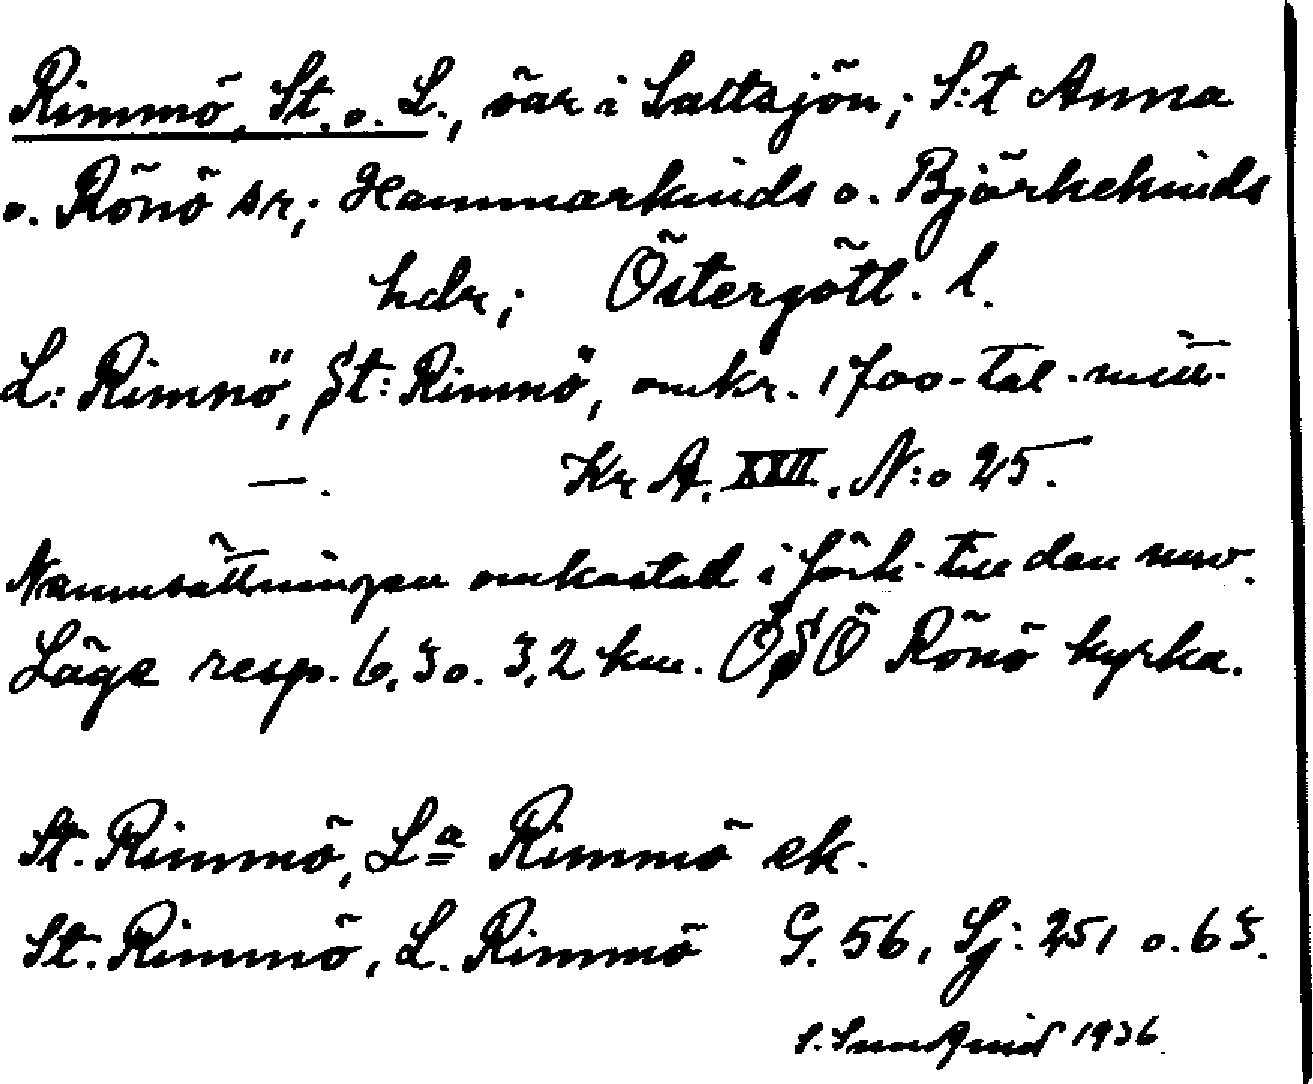 Rimmö, St. o. L., öar i Saltsjön; S:t Anna
o. Rönö sr; Hammarkinds o. Björkekinds
hdr; Östergötl. l.
L: Rimnö, St: Rimnö, omkr. 1700-tal. mitt.
—. Kr A. XXII. N:o 25.
Namnsättningen omkastad i förh. till den nuv.
Läge resp. 6,3 o. 3,2 km. OSO Rönö kyrka.
St. Rimmö, La Rimmö ek.
St. Rimmö, L. Rimmö G. 56, Sj: 251 o. 63.
1936